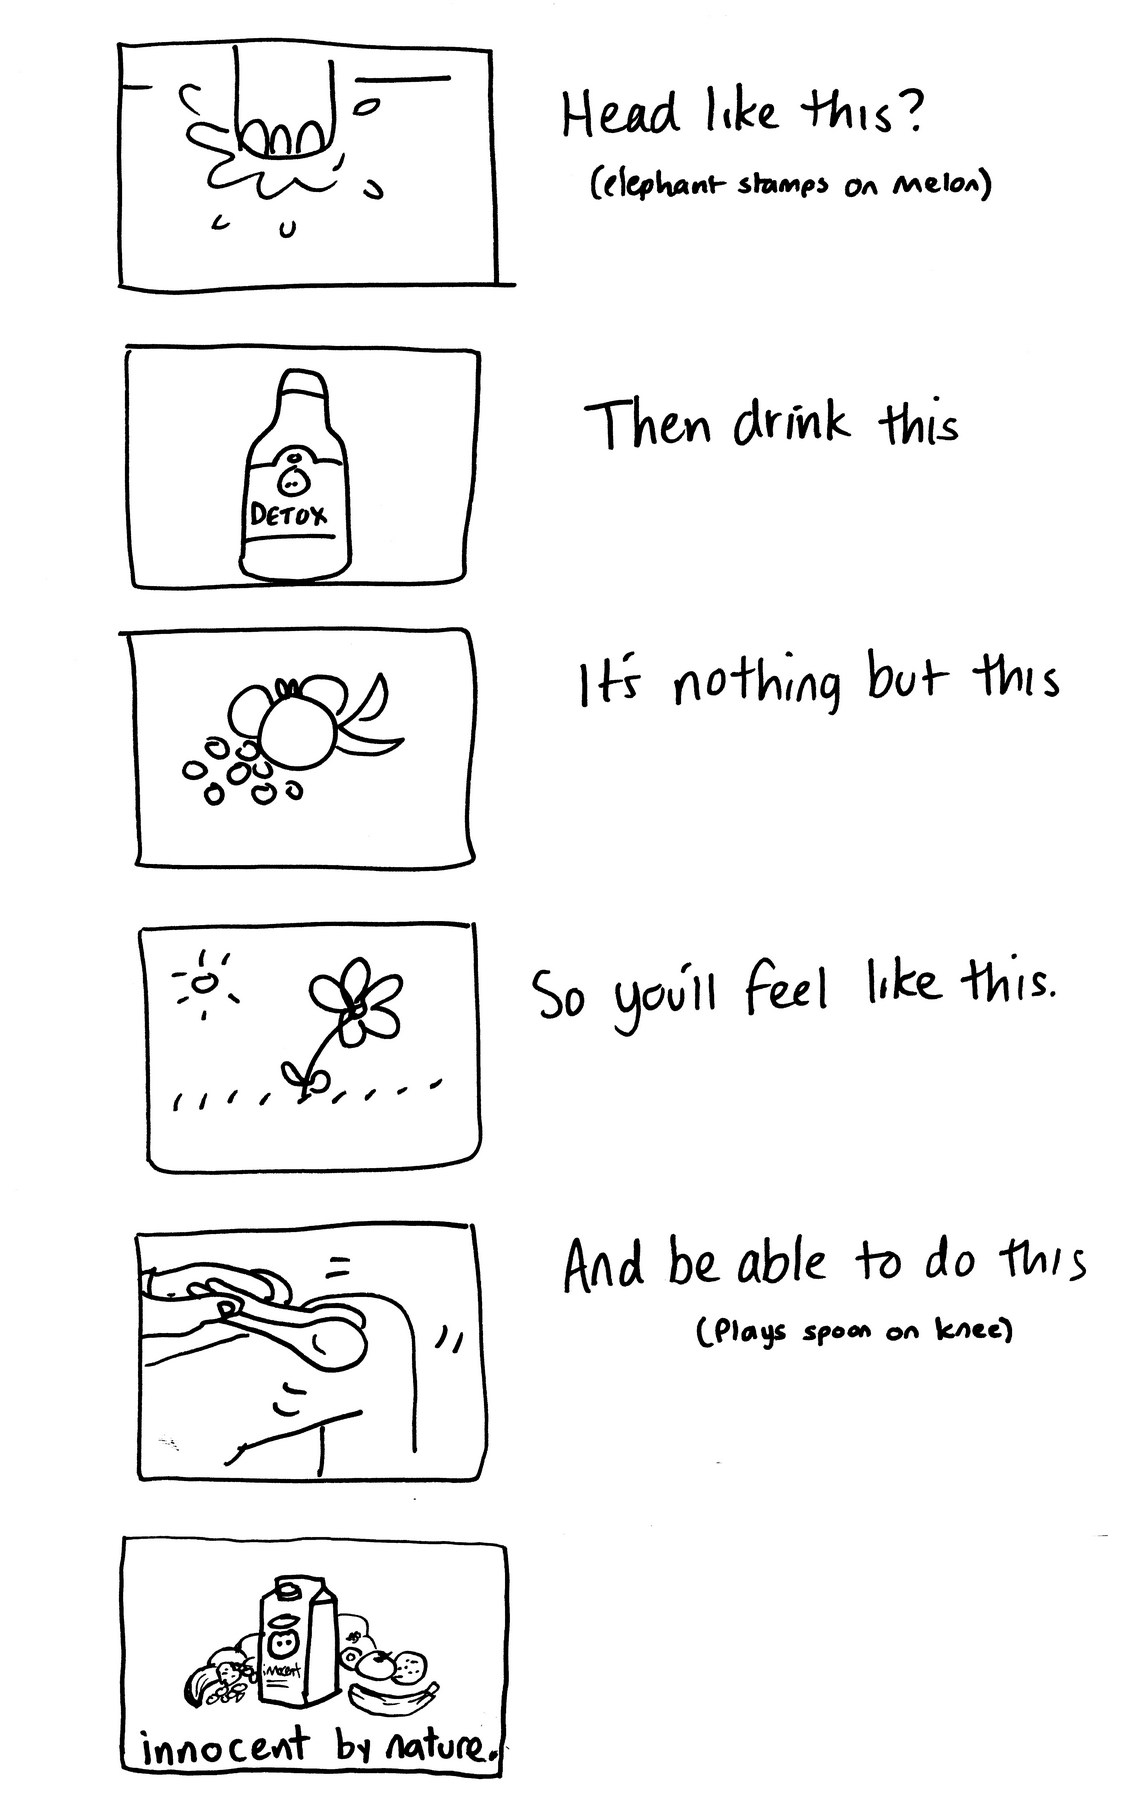 Head like this?
(elephant stamps on melon)
Then drink this
DETOX
It's nothing but this
So you'll feel like this.
And be able to do this
(Plays spoon on knee)
innocent
innocent by nature.